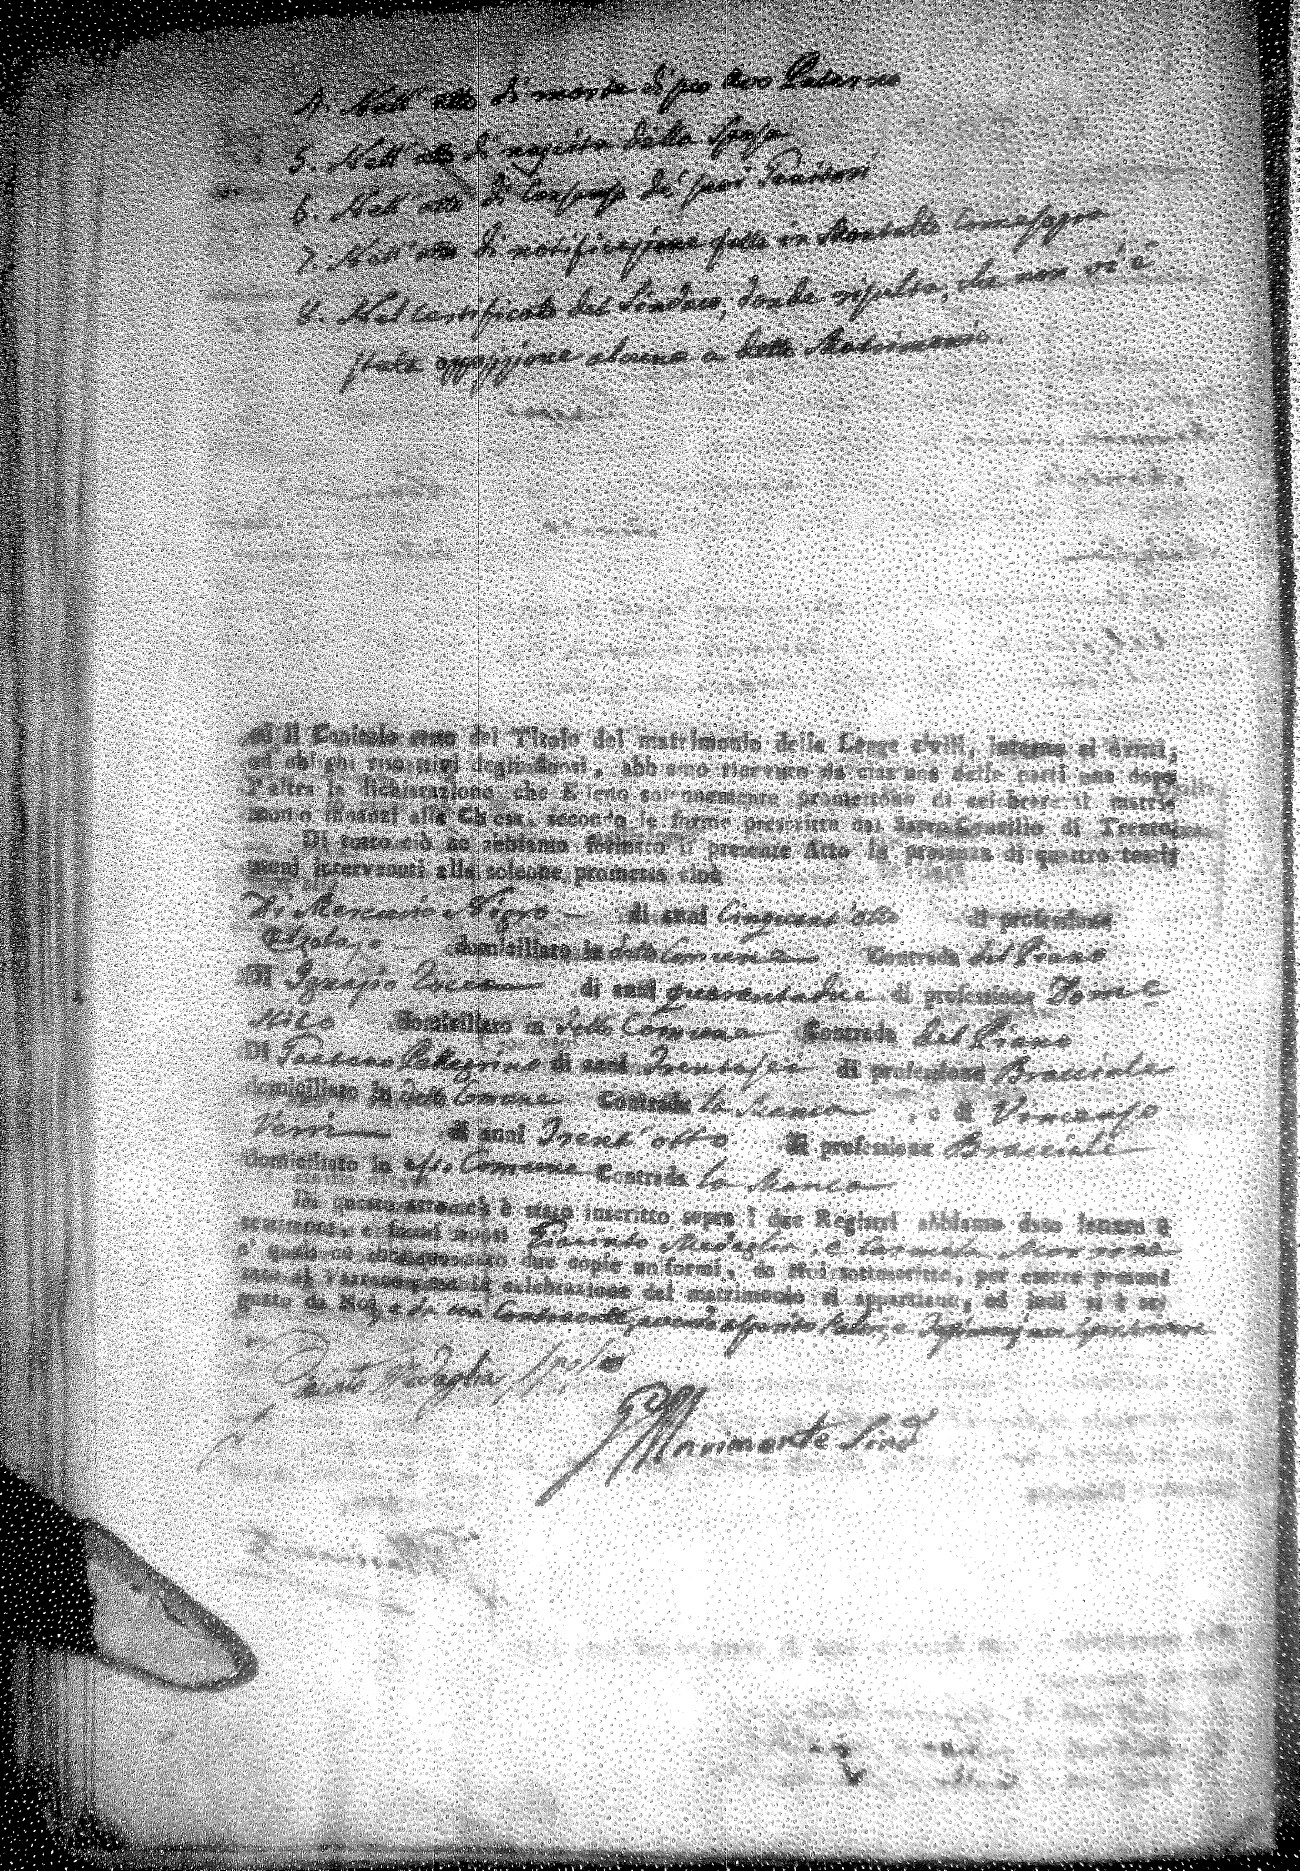 4. Nell' atto di morte di suo Avo Paterno
5. Nell' atto di nascita della Sposa
6. Nell' atto di de' suoi Genitori
7. Nell' atto di notificazione fatta in Montalto
8. Nel Certificato del Sindaco, donde risulta, che non vi è
stata opposizione alcuna a detto Matrimonio.
ed il Capitolo sesto del Titolo del matrimonio delle Legge civili, intorno ai dritti,
ed obblighi rispettivi degli sposi, abbiamo ricevuto da ciascuna delle parti una dopo
l'altra la dichiarazione, che Eglino solennemente promettono di celebrare il matri-
monio innanzi alla Chiesa, secondo le forme prescritte dal Sacro Concilio di Trento.
Di tutto ciò ne abbiamo formato il presente Atto in presenza di quattro testi-
moni intervenuti alla solenne promessa cioè
Di Mercurio Nigro di anni Cinquant'otto di professione
domiciliato in detto Comune Contrada del Piano
Di Ignazio di anni quarantadue di professione Dome
stico domiciliato in detto Comune Contrada del Piano
Di Gaetano Pellegrino di anni Trentasei di professione Bracciale
domiciliato in detto Comune Contrada la Manca, e di Vincenzo
Verri di anni Trent'otto di professione Bracciale
domiciliato in esso Comune Contrada la Manca
Di questo atto ch'è stato inscritto sopra i due Registri abbiamo dato lettura a'
testimoni, e futuri sposi Giacinto Medaglia, e Carmela
a' quali ne abbiamo dato due copie uniformi, da Noi sottoscritte, per essere presen-
tate al Parroco cui la celebrazione del matrimonio si appartiene, ed indi si è se-
gnato da Noi, e da un Contraente, avendo
Giacinto Medaglia sposo
Marimonte Sind.